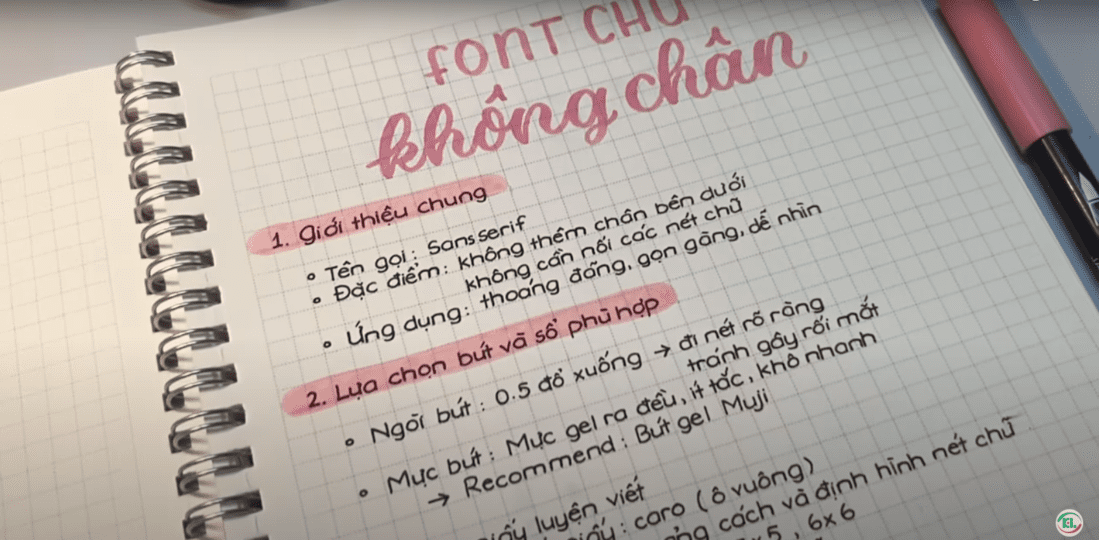 FONT CHỮ
không chân
1. Giới thiệu chung
Tên gọi: Sans serif
Đặc điểm: không thêm chân bên dưới
không cần nối các nét chữ
Ứng dụng: thoáng đãng, gọn gàng, dễ nhìn
2. Lựa chọn bút và sổ phù hợp
Ngòi bút: 0.5 đổ xuống → đi nét rõ ràng
tránh gây rối mắt
Mực bút: Mực gel ra đều, ít tắc, khô nhanh
→ Recommend: Bút gel Muji
luyện viết
caro (ô vuông)
cách và định hình nét chữ
6x6